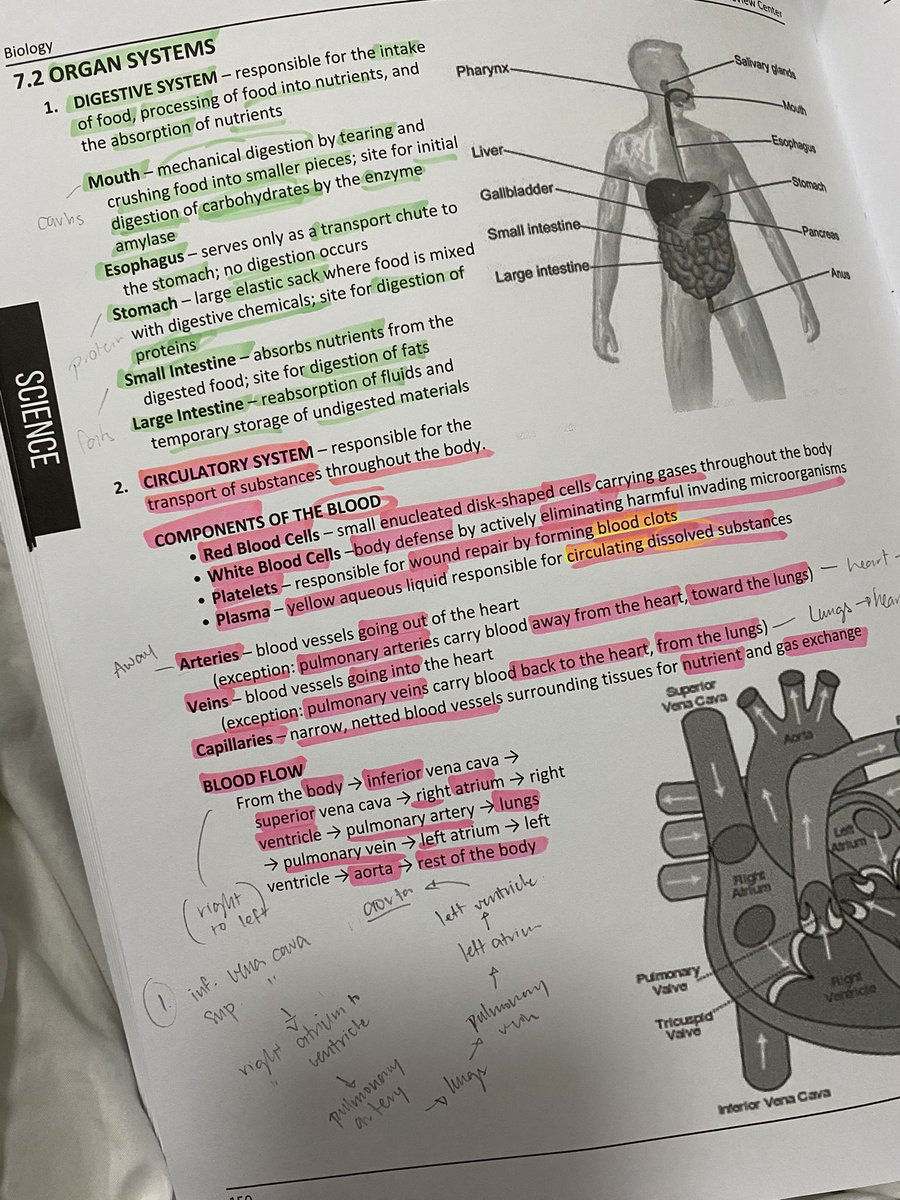 Biology
view Center
7.2 ORGAN SYSTEMS
1. DIGESTIVE SYSTEM – responsible for the intake
of food, processing of food into nutrients, and
the absorption of nutrients
Mouth – mechanical digestion by tearing and
crushing food into smaller pieces; site for initial
digestion of carbohydrates by the enzyme
amylase
carbs
Esophagus – serves only as a transport chute to
the stomach; no digestion occurs
Stomach – large elastic sack where food is mixed
with digestive chemicals; site for digestion of
proteins
protein
Small Intestine – absorbs nutrients from the
digested food; site for digestion of fats
Large Intestine – reabsorption of fluids and
temporary storage of undigested materials
fats
SCIENCE
Pharynx
Liver
Gallbladder
Small intestine
Large intestine
Salivary glands
Mouth
Esophagus
Stomach
Pancreas
Anus
2. CIRCULATORY SYSTEM – responsible for the
transport of substances throughout the body.
COMPONENTS OF THE BLOOD
• Red Blood Cells – small enucleated disk-shaped cells carrying gases throughout the body
• White Blood Cells –body defense by actively eliminating harmful invading microorganisms
• Platelets – responsible for wound repair by forming blood clots
• Plasma – yellow aqueous liquid responsible for circulating dissolved substances
Away — Arteries – blood vessels going out of the heart
(exception: pulmonary arteries carry blood away from the heart, toward the lungs) — heart
Veins – blood vessels going into the heart
(exception: pulmonary veins carry blood back to the heart, from the lungs) — Lungs →
Capillaries – narrow, netted blood vessels surrounding tissues for nutrient and gas exchange
BLOOD FLOW
From the body → inferior vena cava →
superior vena cava → right atrium → right
ventricle → pulmonary artery → lungs
→ pulmonary vein → left atrium → left
ventricle → aorta → rest of the body
(right
to left)
1. inf. vena cava
sup. "
right atrium
" ventricle
pulmonary
artery
→ lungs
pulmonary
vein
left atrium
left ventricle
aorta
Superior
Vena Cava
Aorta
Left
Atrium
Right
Atrium
Pulmonary
Valve
Tricuspid
Valve
Right
Ventricle
Inferior Vena Cava